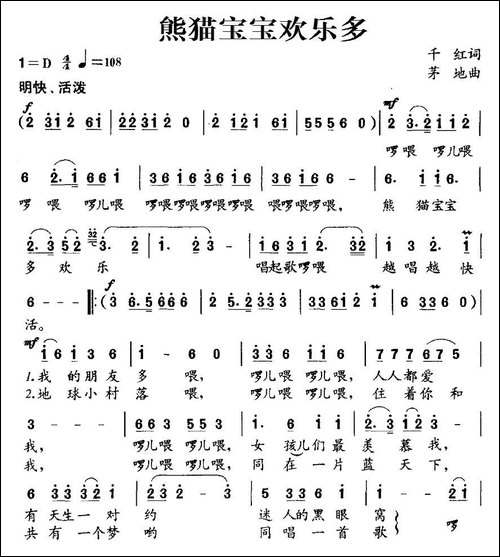 熊猫宝宝欢乐多
1=D 2/4 ♩=108
千 红词
茅 地曲
明快、活泼
f mf
(2 3 1 2 6 1 | 2 2 3 1 2 0 | 2 0 1 2 0 1 | 5 5 5 6 0) | 2 3. 2 1 1 2
啰 喂 啰儿喂
6 2. 1 6 6 1 | 3 6 1 6 1 3 6 1 6 1 | 3 6 1 6 3 6 1 6 | 6 - - - | 6. 1 1 6.
啰 喂 啰儿喂 啰喂啰喂啰喂啰喂 喂啰喂啰喂, 熊 猫宝宝
2. 3 5 2 3. 3 | 2 - 1 - | 1 6 3 1 2 1. 3 2 | 1 3 2 1
多 欢 乐 唱起歌啰喂 越唱越快
f
6 - - ‖: (3 6. 5 6 6 6 | 2 5. 2 3 3 3 | 3 3 6 1 2 2 1 | 6 3 3 6 0)
活。
mf
1 6 1 3 6 | 1 - 6 0 | 3 3 6 1 1 6 | 7 7 7 6 7 5
1.我 的朋友 多 喂, 啰儿喂 啰儿喂, 人人都爱
2.地 球小村 落 喂, 啰儿喂 啰儿喂, 住着你和
3 - - - | 6 6 3 5 5 3 | 1. 6 1 1 | 2 3 1 2
我, 啰儿喂 啰儿喂, 女 孩儿们最 羡慕我,
我, 啰儿喂 啰儿喂, 同 在一片 蓝天下,
6 3 3 3 2 1 | 2 - - - | 6 3 3 2 1 2 | 6 - 0 3
有 天生一对 约 迷 人的黑眼 窝 啰
共 有一个梦 哟 同 唱一首 歌